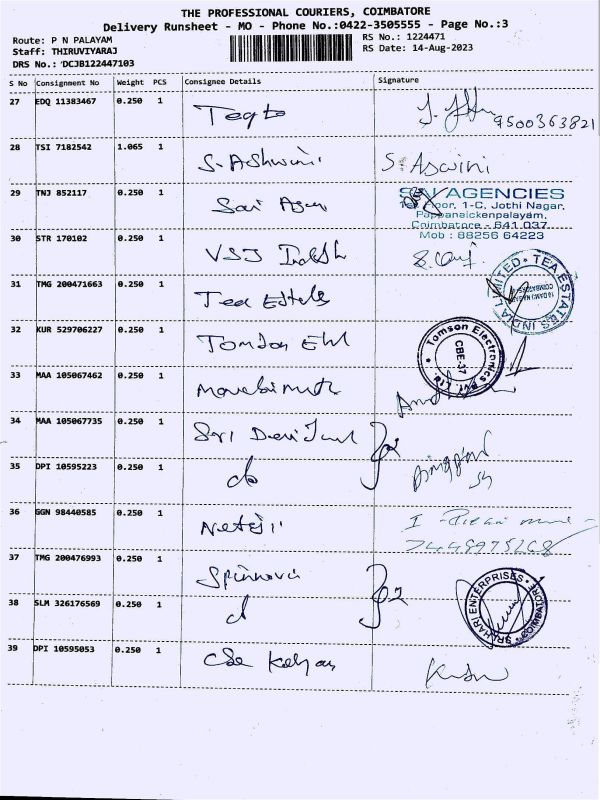 THE PROFESSIONAL COURIERS, COIMBATORE
Delivery Runsheet - MO - Phone No.:0422-3505555 - Page No.:3
Route: P N PALAYAM
Staff: THIRUVIYARAJ
DRS No.: DCJB122447103
RS No.: 1224471
RS Date: 14-Aug-2023
S No Consignment No Weight PCS Consignee Details Signature
27 EDQ 11383467 0.250 1 Teqto 9500363821
28 TSI 7182542 1.065 1 S. Ashwini S. Aswini
29 TNJ 852117 0.250 1 Sai Agen
AGENCIES
Floor, 1-C, Jothi Nagar,
Pappanaickenpalayam,
Coimbatore - 641 037
Mob : 88256 64223
30 STR 170102 0.250 1 VSJ
31 TMG 200471663 0.250 1 Tea
TEA ESTATES INDIA LIMITED
COIMBATORE
32 KUR 529706227 0.250 1 Tomson
Tomson Electronics Pvt. Ltd.
CBE-37
33 MAA 105067462 0.250 1
34 MAA 105067735 0.250 1 Sri Devi
35 DPI 10595223 0.250 1 do
36 GGN 98440585 0.250 1 Netaji
37 TMG 200476993 0.250 1 Spinnova
38 SLM 326176569 0.250 1 d
SRI HARI ENTERPRISES
COIMBATORE
39 DPI 10595053 0.250 1 Cbe Kalyan